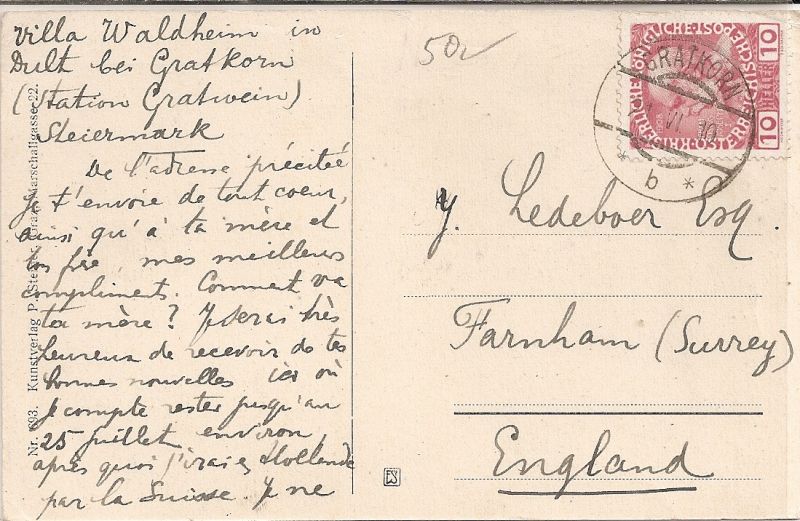 Villa Waldheim in
Dult bei Gratkorn
(Station Gratwein)
Steiermark
De l'adresse précitée
je t'envoie de tout coeur,
ainsi qu'à ta mère et
ton frère, mes meilleurs
compliments. Comment va
ta mère? Je serai très
heureux de recevoir de tes
bonnes nouvelles ici où
je compte rester jusqu'au
25 juillet environ,
après quoi j'irai Hollande
par la Suisse. Je ne
Nr. 693. Kunstverlag P. Graz, Marschallgasse 22.
50
10
HELLER
10
GRATKORN
VI 10
* b *
Ledeboer Esq.
Farnham (Surrey)
England